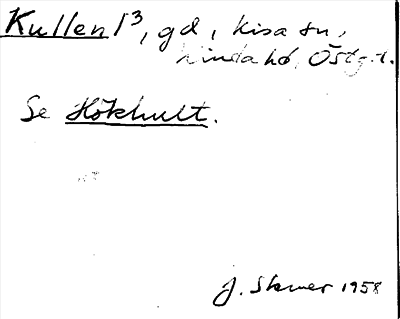 Kullen 1³, gd, Kisa sn,
Kinda hd, Östg.l.
Se Hökhult.
J. Stamer 1958